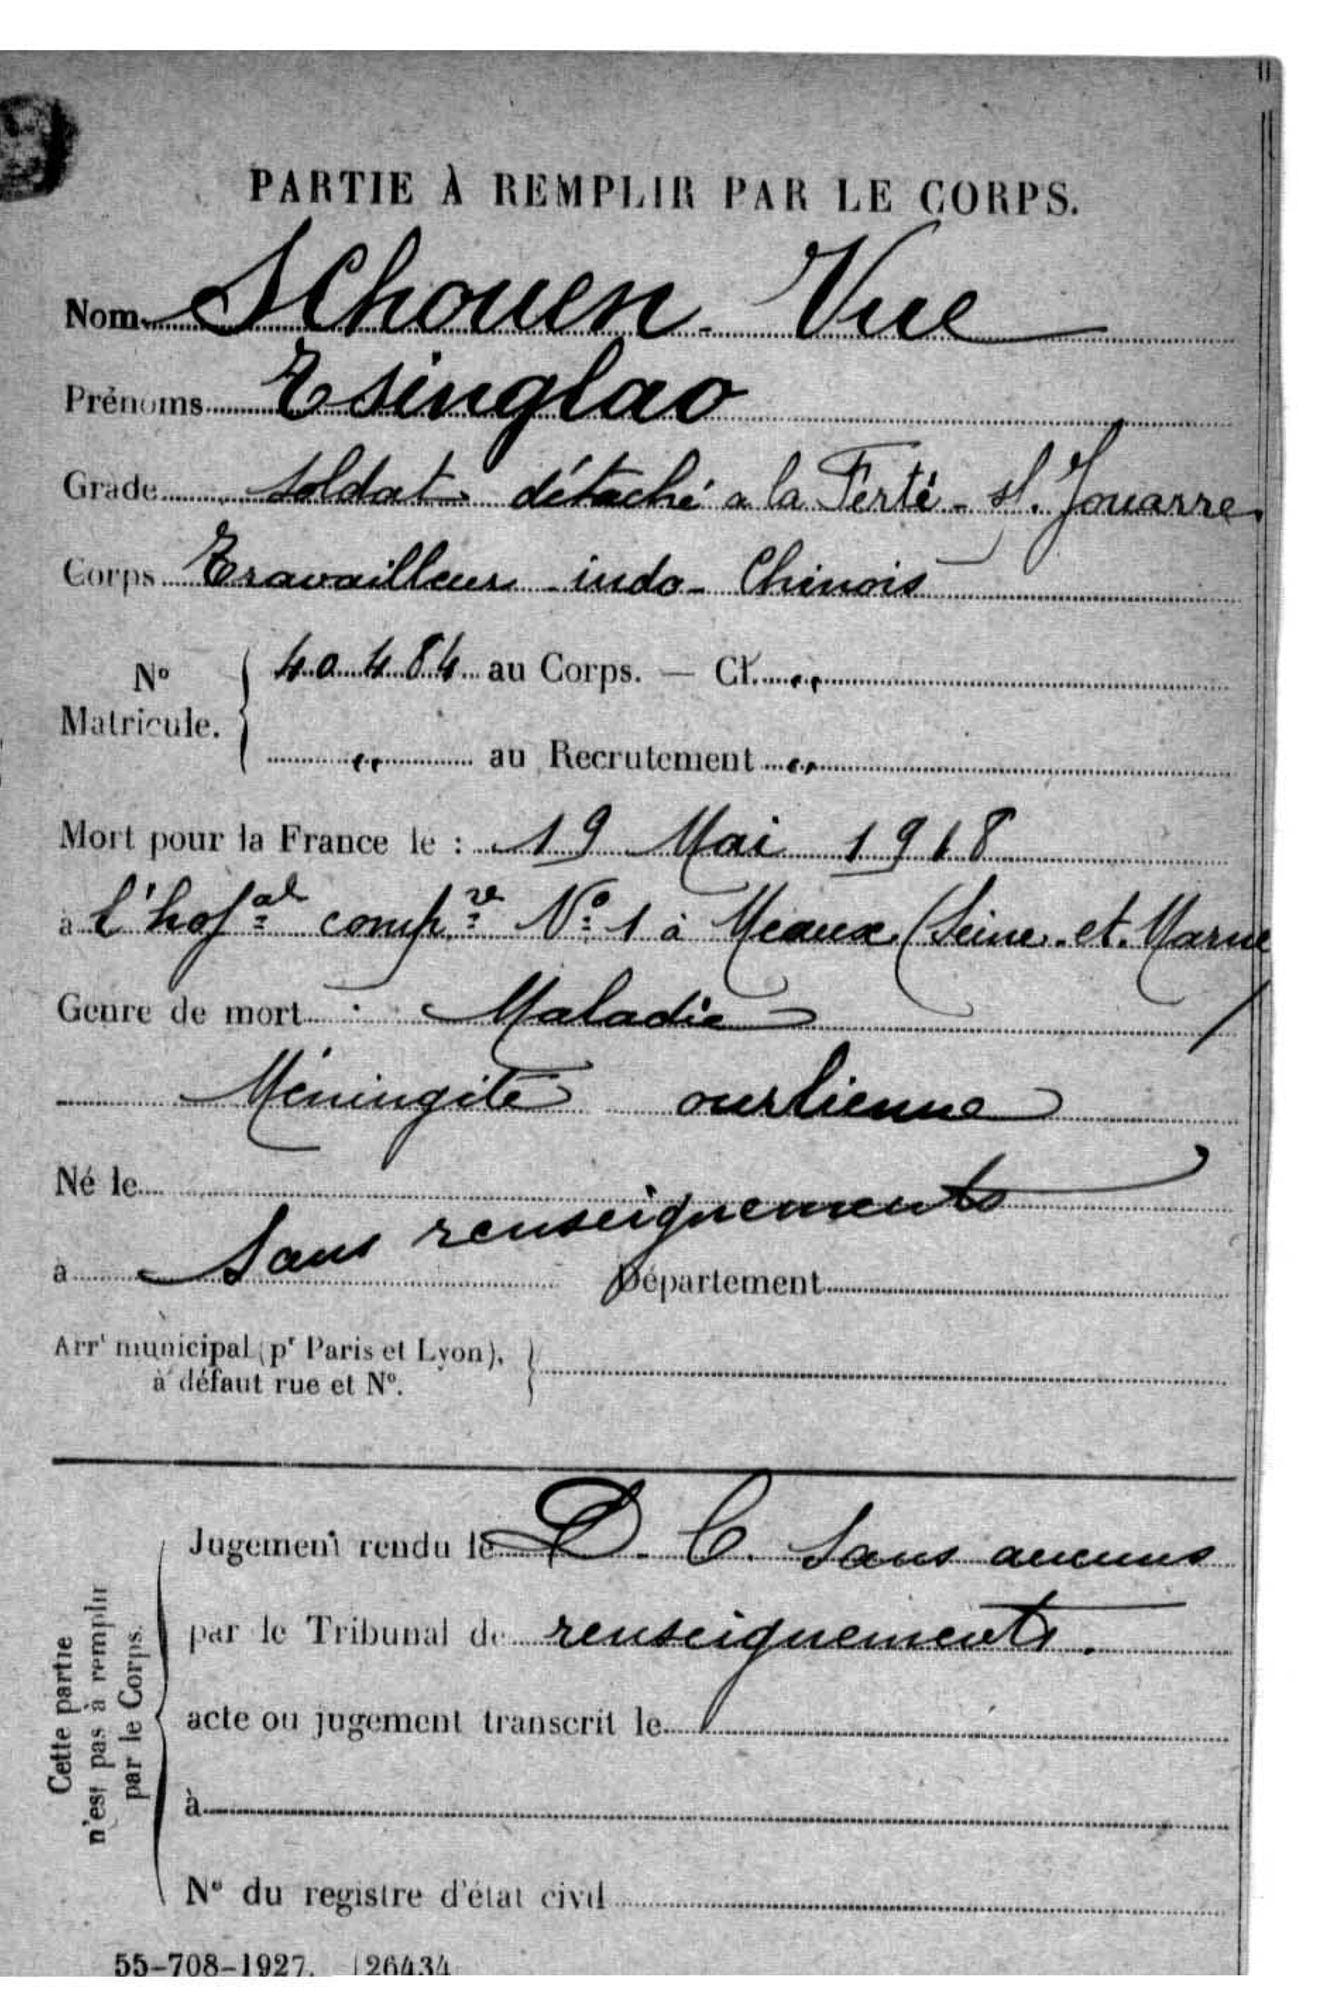 PARTIE À REMPLIR PAR LE CORPS.
Nom Schouen Vue
Prénoms Tsinglao
Grade soldat détaché a la Ferté-s/. Jouarre
Corps Travailleur indo-Chinois
N° Matricule. 40484 au Corps. — Cl. "
" au Recrutement "
Mort pour la France le : 19 Mai 1918
à l'hopal compre N° 1 à Meaux (Seine et Marne
Genre de mort Maladie /
Méningite ourlienne
Né le
à Sans renseignements Département
Arrt municipal (pr Paris et Lyon),
à défaut rue et N°.
Cette partie
n'est pas à remplir
par le Corps.
Jugement rendu le D. C. Sans aucuns
par le Tribunal de renseignements.
acte ou jugement transcrit le
à
N° du registre d'état civil
55-708-1927. 26434